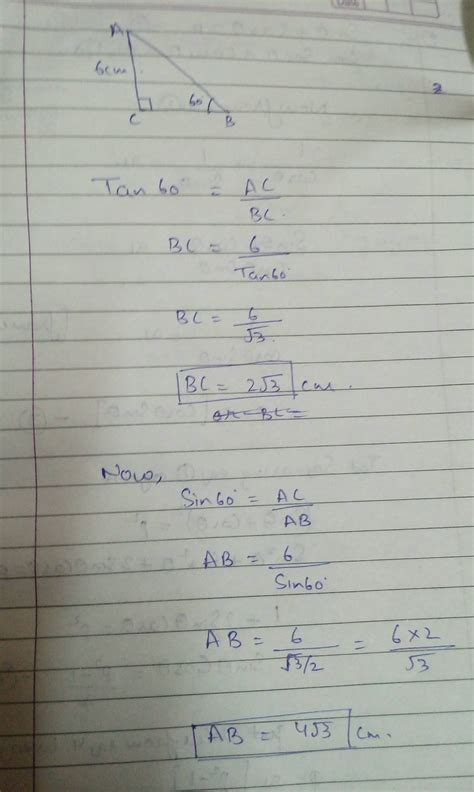 A
6cm.
60°
C
B
Tan 60° = AC
BC.
BC = 6
Tan60°
BC = 6
√3.
BC = 2√3 cm.
Now,
Sin60° = AC
AB
AB = 6
Sin60°
AB = 6 = 6×2
√3/2 √3
AB = 4√3 cm.